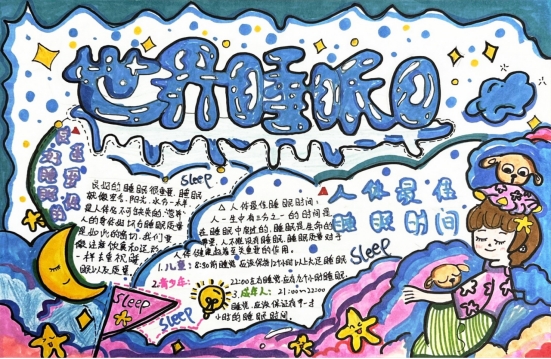 世界睡眠日
良好睡眠
Sleep
良好的睡眠很重要,睡眠
就像空气,阳光,水分一样,
是人体必不可缺失的"营养"
人的身体 与睡眠质量
是 的密切,我们要
像注意饮食和运动一
样去重视睡
眠以及质量
人体最佳睡眠时间,
人一生中有三分之一的时间是
在睡眠中度过的,睡眠是生命的
需要,人不能没有睡眠,睡眠质量对于
人体健康起着至关重要的作用。
1.儿童:8:30前睡觉 应该保持12个小时以上 充足睡眠
2.青少年: 22:00左右睡觉 应有九个小时睡眠
3.成年人: 21:00~22:00
睡觉,应该保证
小时的睡眠时间.
人体最佳
睡眠时间
Sleep
Sleep
Sleep